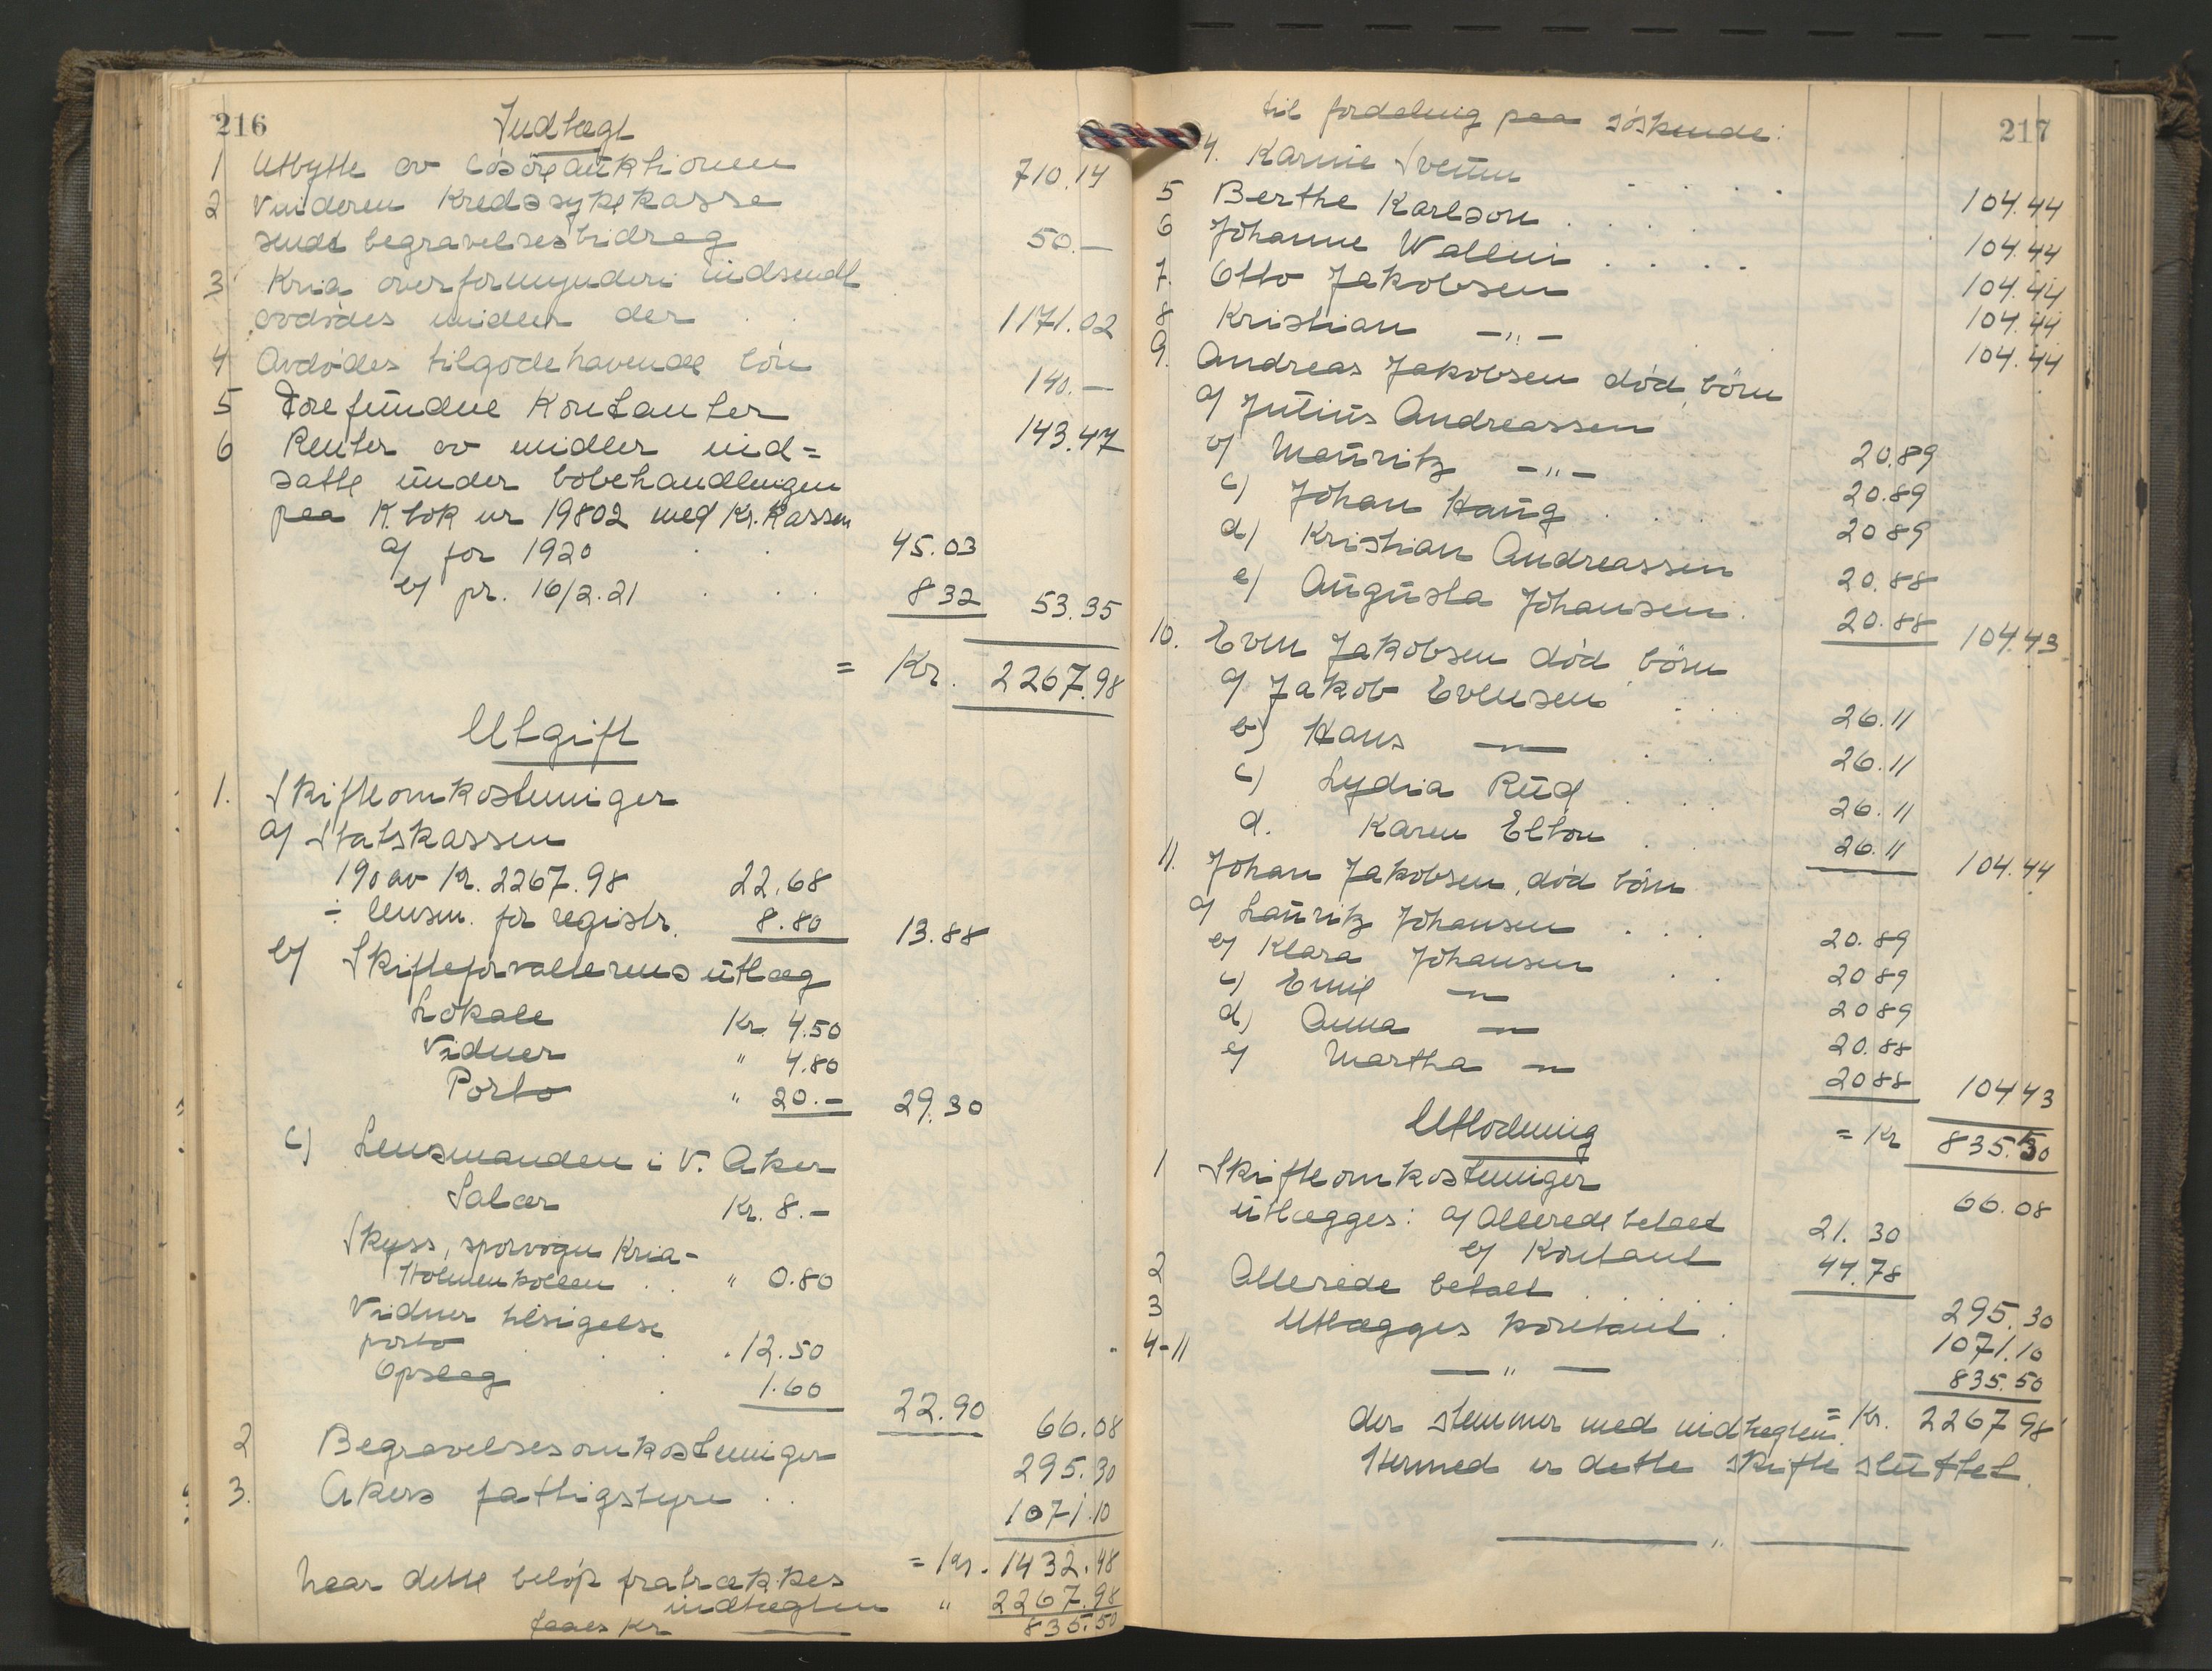 216
Indtægt
1 Utbytte av løsøreauktionen 710.14
2 Vinderen Kredssykekasse
sendt begravelsesbidrag 50.—
3 Kria overformynderi indsendt
avdødes midler der . . 1171.02
4 Avdødes tilgodehavende løn 140.—
5 Forefundne Kontanter 143.47
6 Renter av midler ind=
satte under bobehandlingen
paa K. bok nr 19802 med Kr. Kassen
a) for 1920 . . 45.03
b) pr. 16/2.21 . . . 832 53.35
= Kr. 2267.98
Utgift
1. Skifteomkostninger
a) Statskassen
1% av Kr. 2267.98 22.68
÷ lensm. for registr. 8.80 13.88
b) Skifteforvalterens utlæg
Lokale Kr. 4.50
Vidner " 4.80
Porto " 20.— 29.30
c) Lensmanden i V. Aker
Salær Kr. 8.—
Skyss, sporvogn Kria-
Holmenkollen . . " 0.80
Vidner tilsigelse
porto . . . 12.50
Opslag . 1.60 22.90 66.08
2 Begravelsesomkostninger 295.30
3. Akers fattigstyre . . 1071.10
= Kr. 1432.48
Naar dette beløp fratrækkes
indtægten " 2267.98
faaes Kr 835.50
217
til fordeling paa søskende:
4. Karnie Sveum . . . . 104.44
5 Berthe Karlson . . . . 104.44
6 Johanne Wallin . . . . 104.44
7. Otto Jakobsen 104.44
8 Kristian —"— 104.44
9. Andreas Jakobsen død, børn
a) Julius Andreassen 20.89
b) Mauritz —"— 20.89
c) Johan Haug . . . 2089
d) Kristian Andreassen 20.88
e) Augusta Johansen . 20.88 104.43
10. Even Jakobsen død børn
a) Jakob Evensen . . 26.11
b) Hans —"— . . 26.11
c) Lydia Rud . . 26.11
d. Karen Elton . . 26.11 104.44
11. Johan Jakobsen, død børn
a) Lauritz Johansen . . . 20.89
b) Klara Johansen . . 2089
c) Emil —"— 2089
d) Anna —"— 20.88
e) Martha —"— 2088 10443
= Kr 835.50
Utlodning
1 Skifteomkostninger 66.08
utlægges: a) Allerede betalt 21.30
b) Kontant 44.78
2 Allerede betalt . . . . 295.30
3 Utlægges kontant . 1071.10
4-11 —"— 835.50
= Kr. 2267 98
der stemmer med indtægten.
Hermed er dette skifte sluttet.
—"—